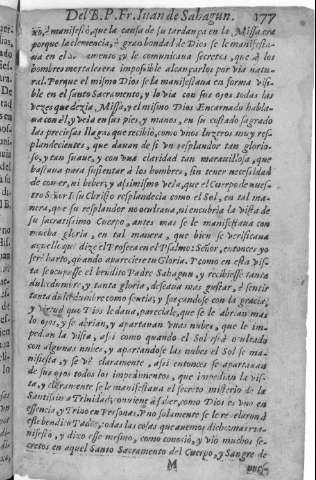 Del B. P. Fr. Iuan de Sahagun. 177
uo, y manifestó, que la causa de su tardança en la Missa era
porque la clemencia, y gran bondad de Dios se le manifesta-
ua en el Sacramento, y le comunicaua secretos, que à los
hombres mortales era impossible alcançarlos por via natu-
ral. Porque el mismo Dios se la manifestaua en forma visi-
ble en el Santo Sacramento, y lo via con sus ojos todas las
vezes que dezia Missa, y el mismo Dios Encarnado habla-
ua con èl, y veia en sus pies, y manos, en su costado sagrado
las preciosas llagas que recibiò, como vnos luzeros muy res-
plandecientes, que dauan de sì vn resplandor tan glorio-
so, y tan suaue, y con vna claridad tan marauillosa, que
bastaua para sustentar à los hombres, sin tener necessidad
de comer, ni beber, y assimismo veia, que el Cuerpo de nues-
tro Señor Iesu Christo resplandecia como el Sol, en tal ma-
nera, que su resplandor no ocultaua, ni encubria la vista de
su sacratissimo Cuerpo, antes mas se le manifestaua con
mucha gloria, en tal manera, que bien se verificaua
aquello que dize el Profeta en el Psalmo: Señor, entonces yo
serè harto, quando apareciere tu Gloria. Y como en esta vis-
ta se ocupasse el bendito Padre Sahagun, y recibiesse tanta
dulcedumbre, y tanta gloria, deseaua mas gustar, è sentir
tanta dulcedumbre como sentia, y forçandose con la gracia,
y virtud que Dios le daua, pareciale, que se le abrian mas
lo ojos, y se abrian, y apartauan vnas nubes, que le im-
pedian la vista, assi como quando el Sol està ocultado
con algunas nubes, y apartandose las nubes el Sol se ma-
nifiesta, y se vè claramente, assi entonces se apartauan
de sus ojos todos los impedimentos, que impedian la vis-
ta, y claramente se le manifestaua el secreto misterio de la
Santissima Trinidad, conuiene à saber, como Dios es vno en
essencia, y Trino en Personas. Y no solamente se le reuelaron à
este bendito Padre, todas las cosas que auemos dicho, mas ma-
nifestò, y dixo esse mesmo, como conociò, y viò muchos se-
cretos en aquel Santo Sacramento del Cuerpo, y Sangre de
M